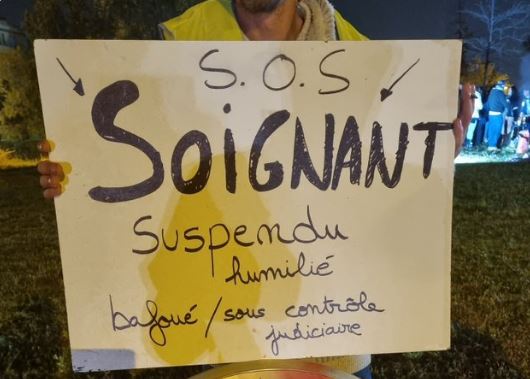 S.O.S
SOiGNANT
Suspendu
humilié
bafoué / sous contrôle
judiciaire